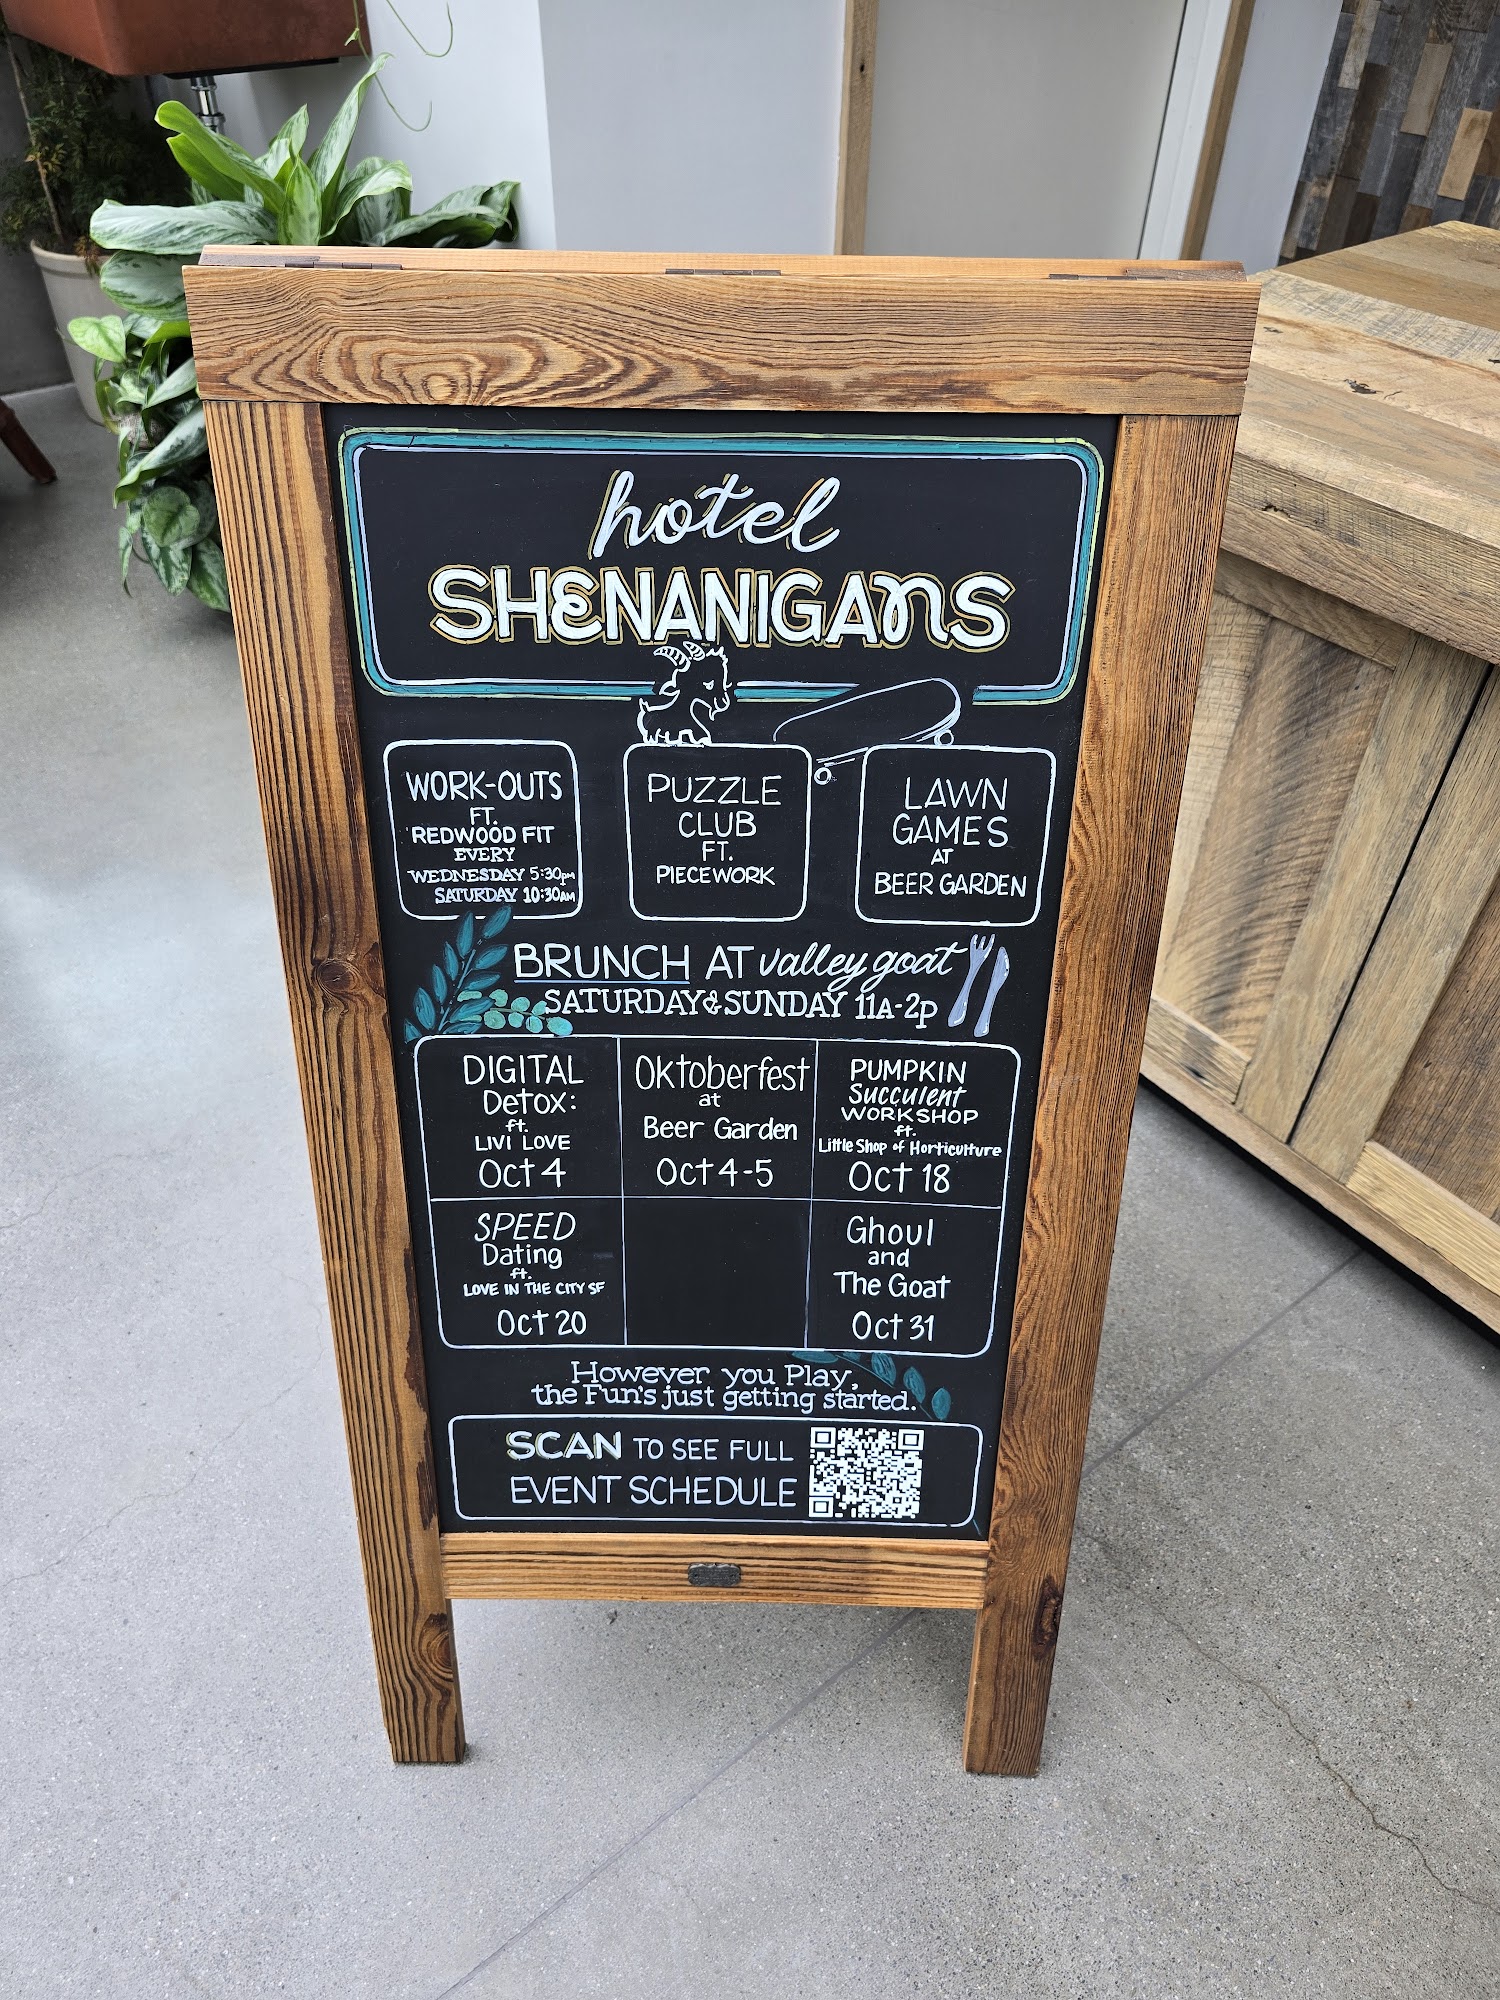 hotel
SHENANIGANS
WORK-OUTS
FT.
REDWOOD FIT
EVERY
WEDNESDAY 5:30pm
SATURDAY 10:30AM
PUZZLE
CLUB
FT.
PIECEWORK
LAWN
GAMES
AT
BEER GARDEN
BRUNCH AT valley goat
SATURDAY & SUNDAY 11A-2P
DIGITAL
Detox:
ft.
LIVI LOVE
Oct 4
Oktoberfest
at
Beer Garden
Oct 4-5
PUMPKIN
Succulent
WORKSHOP
ft.
Little Shop of Horticulture
Oct 18
SPEED
Dating
ft.
LOVE IN THE CITY SF
Oct 20
Ghoul
and
The Goat
Oct 31
However you Play,
the Fun's just getting started.
SCAN TO SEE FULL
EVENT SCHEDULE